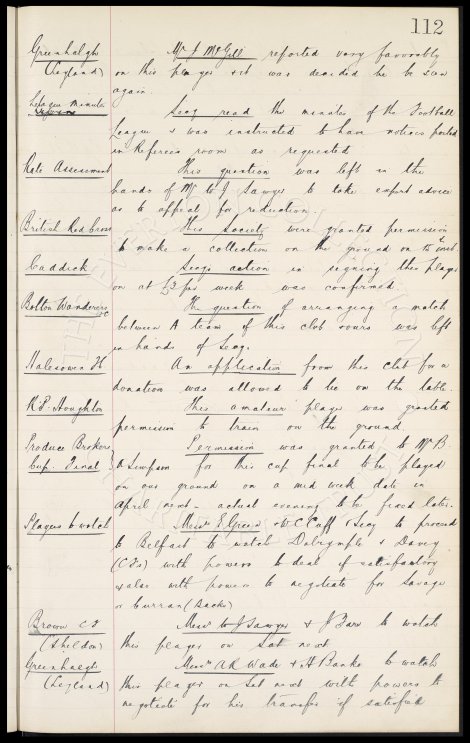 112
Greenhalgh Mr J McGill reported very favorably
(Leyland) on this player & it was decided he be seen
again.
League Minutes Secy read the minutes of the Football
League & was instructed to have notices posted
in Referees room as requested
Rate Assessment This question was left in the
hands of Mr W J Sawyer to take expert advice
as to appeal for reduction.
British Red Cross This society were granted permission
to make a collection on the ground on inst
Caddick Secys action in signing this player
on at £3 per week was confirmed
Bolton Wanderers FC The question of arranging a match
between A team of this club & ours was left
in hands of Secy.
Halesowen An application from this club for a
donation was allowed to lie on the table.
R.P. Houghton This amateur player was granted
permission to train on the ground.
Produce Brokers Permission was granted to Mr B.
Cup Final A Simpson for this cup final to be played
on our ground on a mid week date in
April next - actual evening to be fixed later.
Players to watch Messrs E. Green & W.C. Cuff & Secy to proceed
to Belfast to watch Dalrymple & Davey
with powers to deal if satisfactory
& also with powers to negotiate for Savage
or Curran (Backs)
Brown Messrs W J Sawyer & J Baw to watch
(Shildon) this player on Sat next
Greenhalgh Messrs A R Wade & H Banks to watch
(Leyland) this player on Sat next with powers to
negotiate for his transfer if satisfied